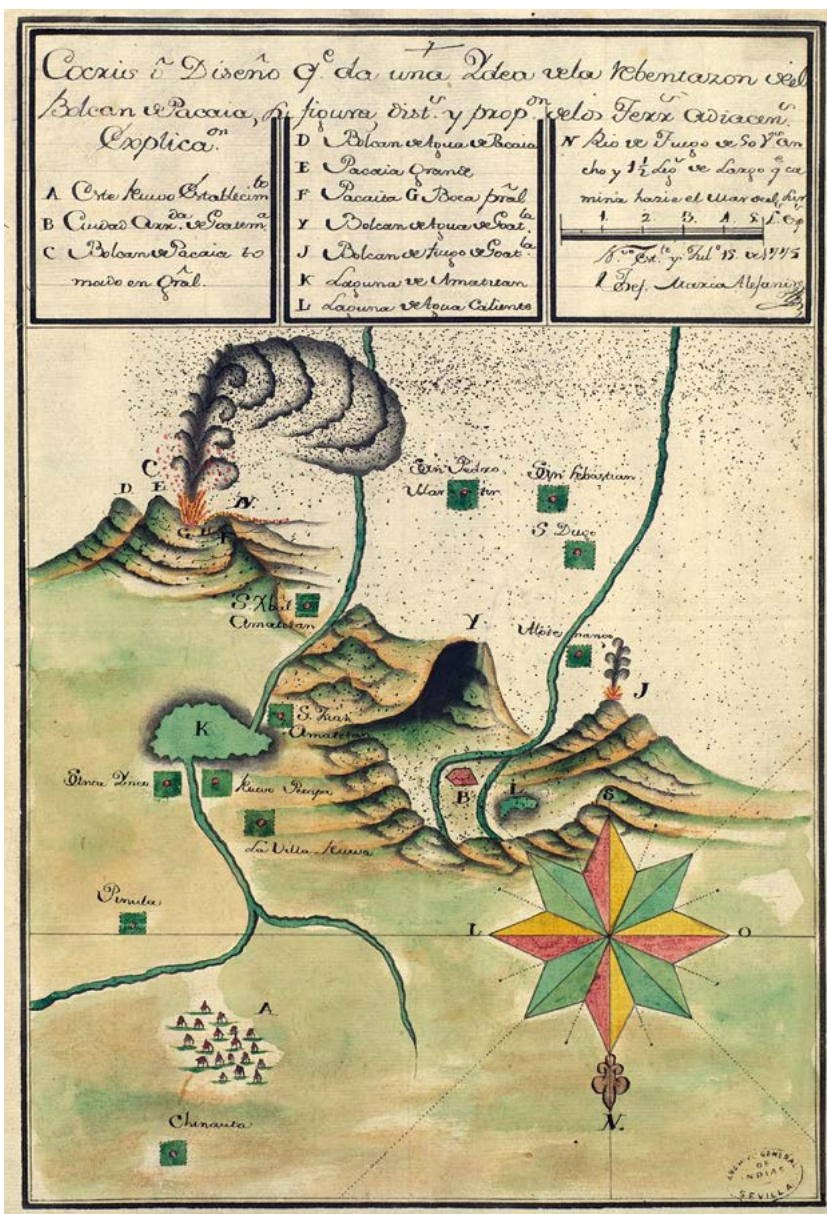 Cocxuis ô Diseño q.e da una Ydea dela Rebentazon del
Bolcan de Pacaia, su figura, dist.s y prop.on delos Terr.s adiacen.s
Explica.on
A Este Nuevo Establecim.to
B Ciudad Arr.da de Goatem.a
C Bolcan de Pacaia to
mado en Gral.
D Bolcan de Agua de Pacaia
E Pacaia Grande
F Pacaita G Boca pral
Y Bolcan de Agua de Goat.la
J Bolcan de fuego de Goat.la
K Laguna de Amatitan
L Laguna de Agua Caliente
N Rio de Fuego de 50 V.s an
cho y 1½ Leg.s de Largo q.e ca
mina hazie el Mar del Sur
1. 2. 3. 4. 5 L.s Esp
N.vo Est.to y Jul.o 15 de 1775
Josef Maria Alejandre
C
D E N
G F
San Pedro
Martir
San Sebastian
S. Diego
S. Xbal
Amatitan
Y
Alotenango
J
K
S. Juan
Amatitan
B
L
Nuevo Petapa
La Villa Nueva
S
Pinula
L
O
A
N.
Chinauta
ARCHIVO GENERAL
DE
INDIAS
SEVILLA